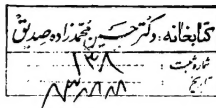 کتابخانه: دکتر حسین محمدزاده صدیق
شماره ثبت: ۱۳۸
تاریخ: